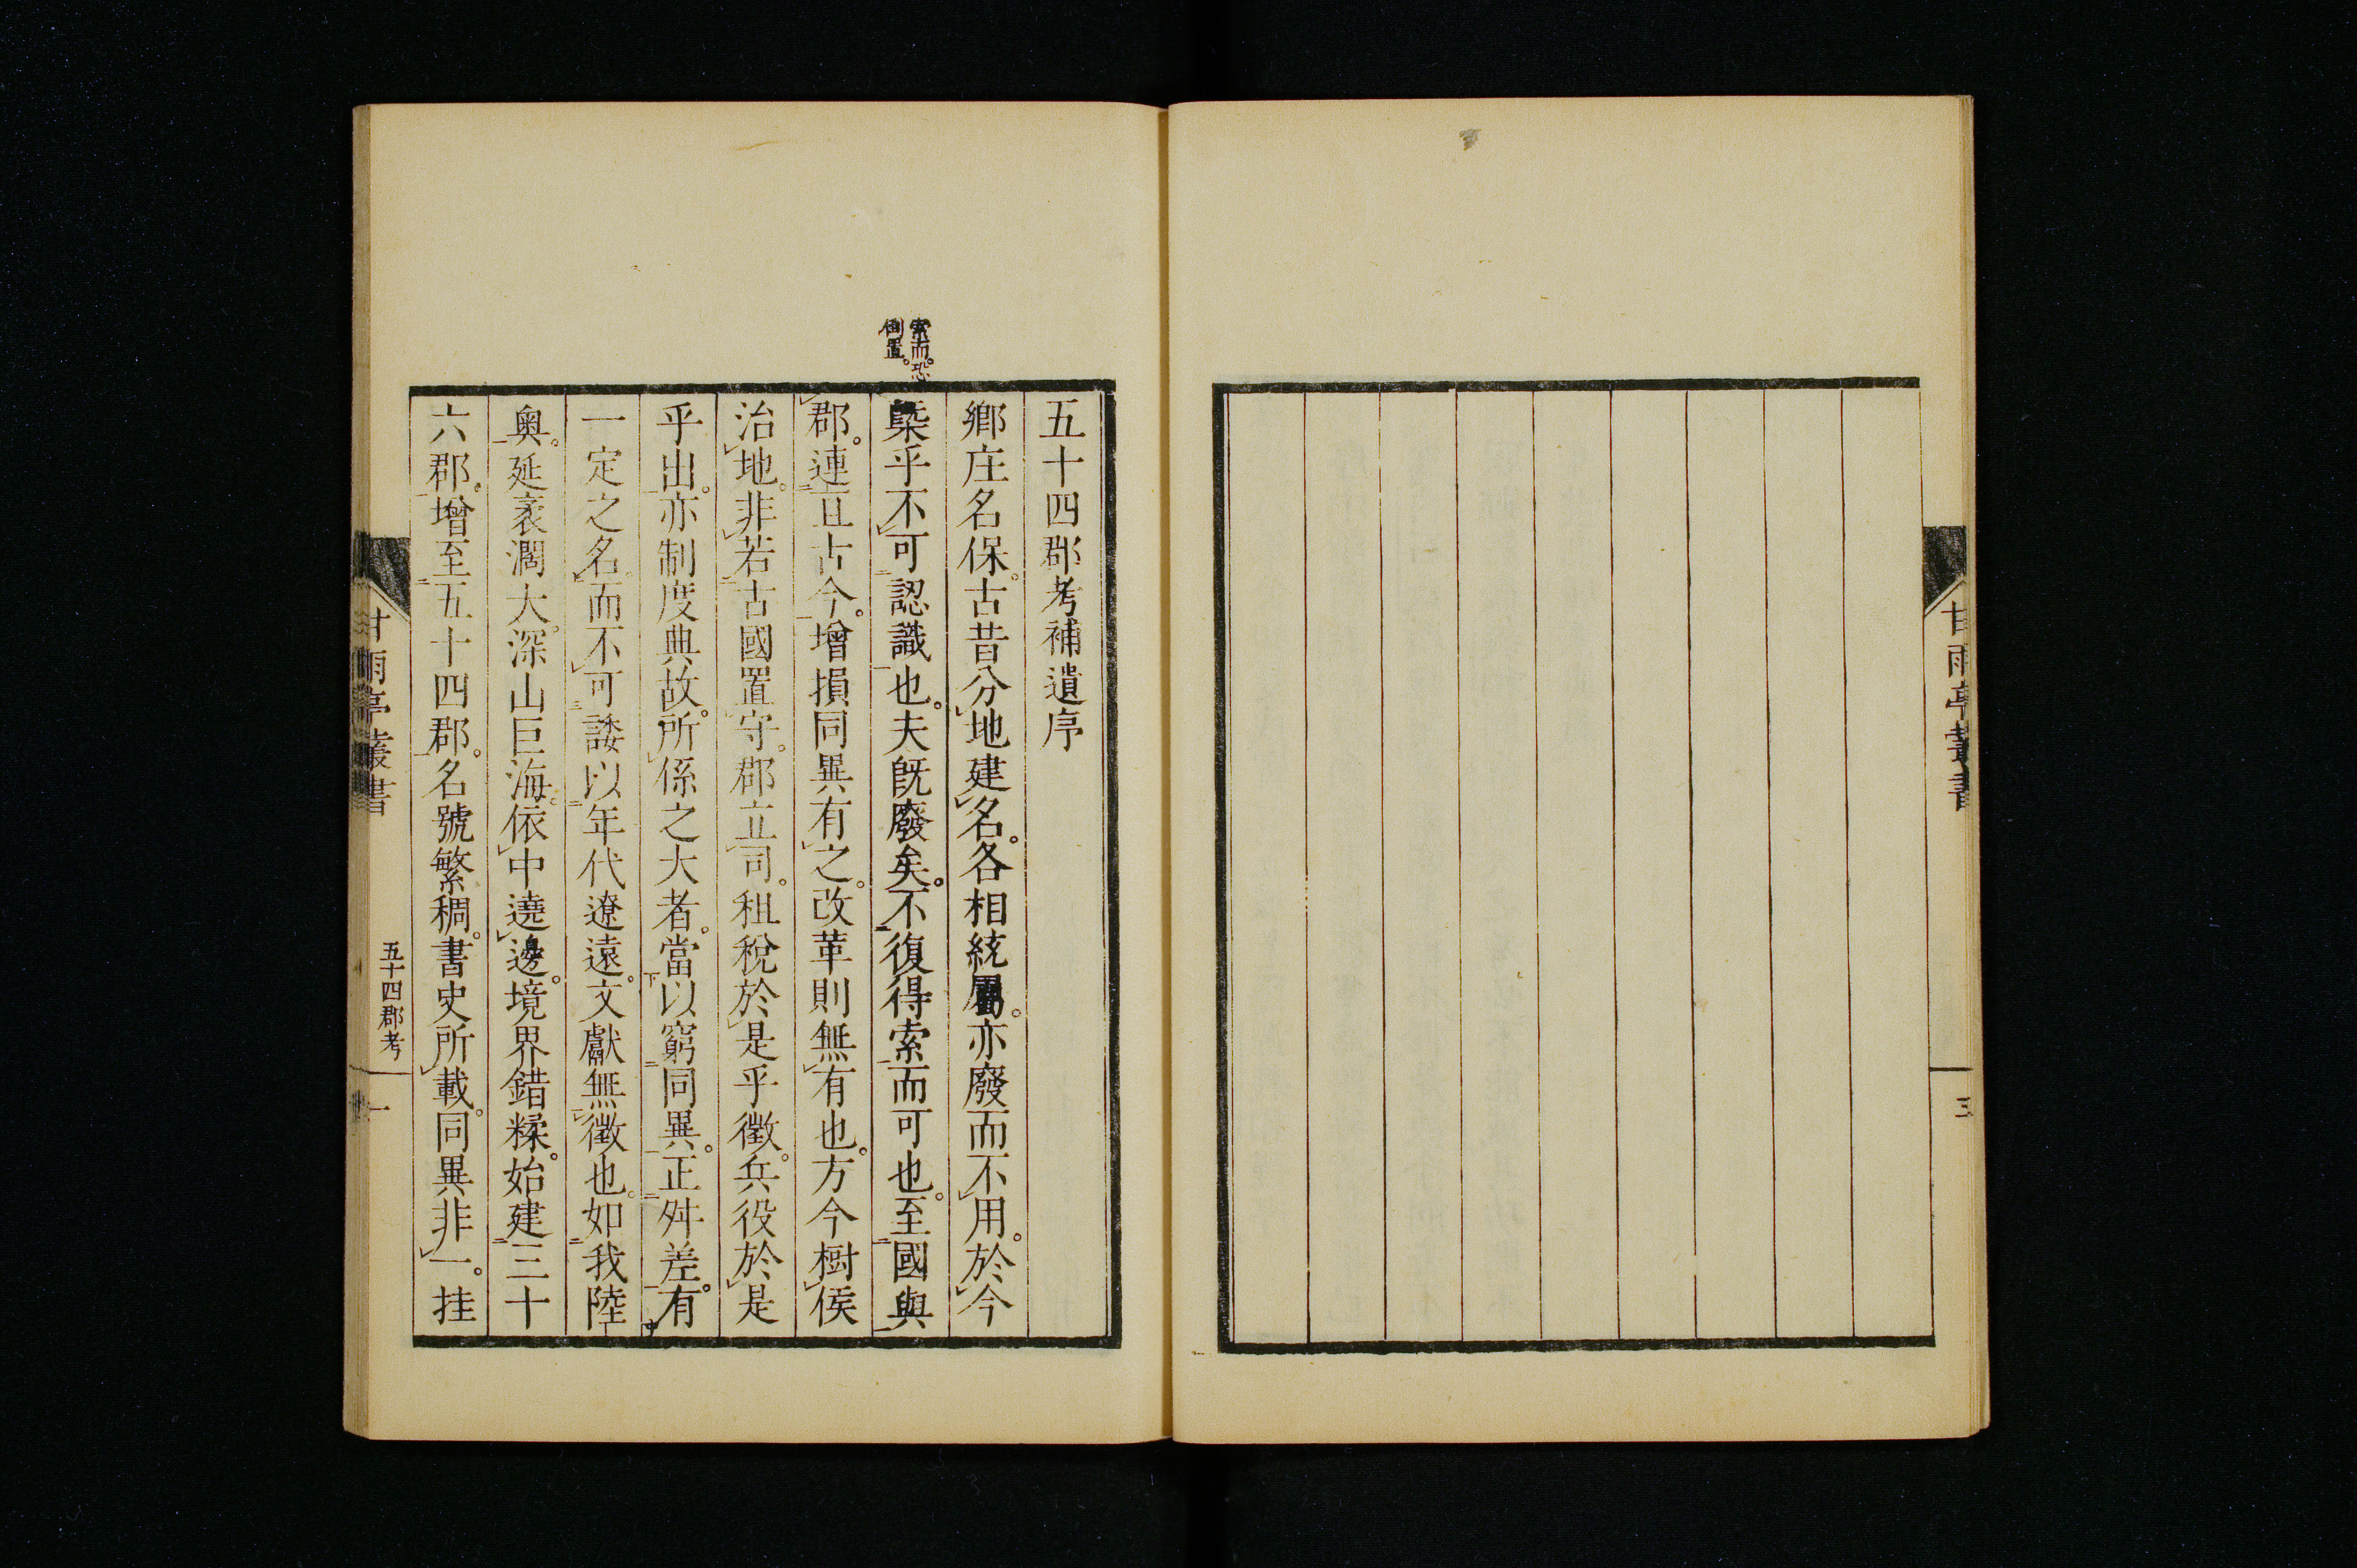 甘雨亭叢書
三
五十四郡考補遺序
鄉庄名保。古昔分地建名。各相統屬。亦廢而不用。於今
槩乎不可認識也。夫既廢矣。不復得索而可也。至國與
郡。連亘古今。增損同異有之。改革則無有也。方今樹侯
治地。非若古國置守。郡立司。租稅於是乎徵。兵役於是
乎出。亦制度典故。所係之大者。當以窮同異。正舛差。有
一定之名。而不可諉以年代遼遠。文獻無徵也。如我陸
奥。延袤濶大。深山巨海。依中遶邊。境界錯糅。始建三十
六郡。增至五十四郡。名號繁稠。書史所載。同異非一。挂
索而。恐
倒置。
甘雨亭叢書
五十四郡考
一